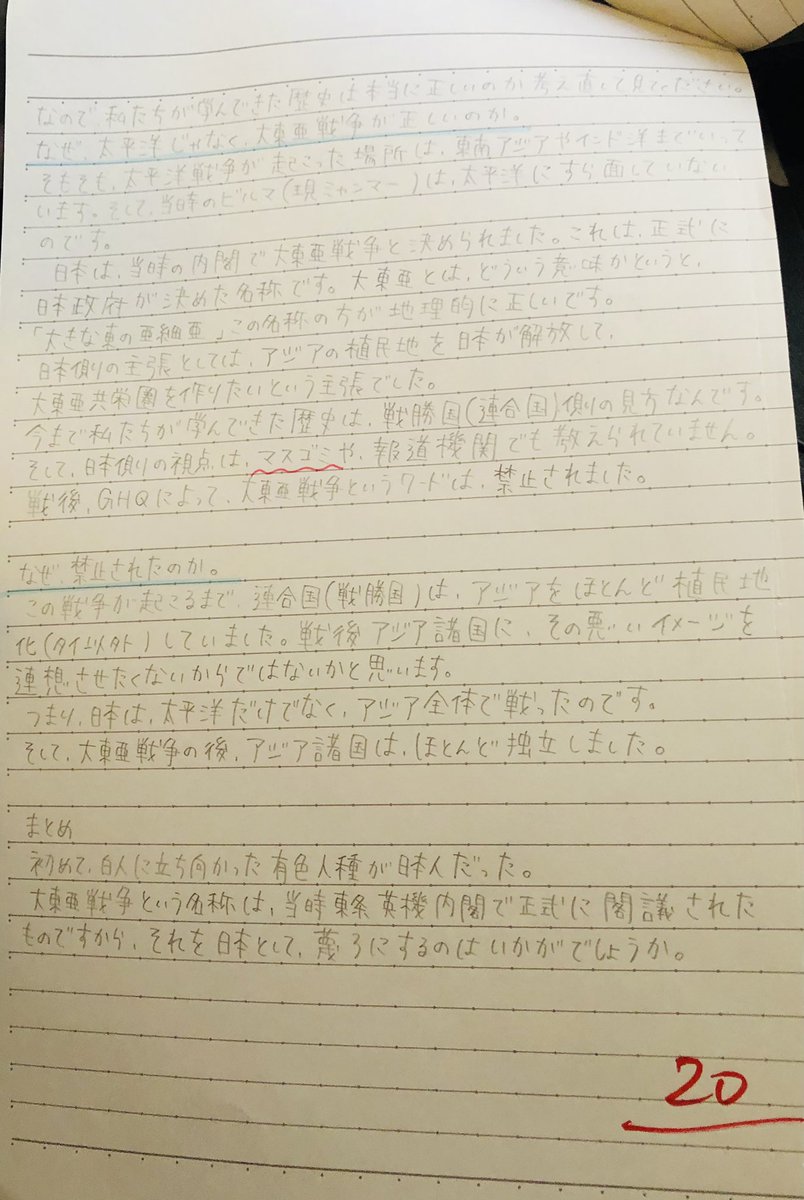 なので、私たちが学んできた歴史は本当に正しいのか考え直して見てください。
なぜ、太平洋じゃなく、大東亜戦争が正しいのか。
そもそも、太平洋戦争が起こった場所は、東南アジアやインド洋まで いって
います。そして、当時のビルマ(現ミャンマー)は、太平洋にすら面していない
のです。
日本は、当時の内閣で大東亜戦争と決められました。これは、正式に
日本政府が決めた名称です。大東亜とは、どういう意味かというと、
「大きな東の亜細亜」この名称の方が地理的に正しいです。
日本側の主張としては、アジアの植民地を日本が解放して、
大東亜共栄圏を作りたいという主張でした。
今まで私たちが学んできた歴史は、戦勝国(連合国)側の見方なんです。
そして、日本側の視点は、マスゴミや、報道機関でも教えられていません。
戦後、GHQによって、大東亜戦争というワードは、禁止されました。
なぜ、禁止されたのか。
この戦争が起こるまで、連合国(戦勝国)は、アジアをほとんど植民地
化(タイ以外)していました。戦後アジア諸国に、その悪いイメージを
連想させたくないからではないかと思います。
つまり、日本は、太平洋だけでなく、アジア全体で戦ったのです。
そして、大東亜戦争の後、アジア諸国は、ほとんど独立しました。
まとめ
初めて、白人に立ち向かった有色人種が日本人だった。
大東亜戦争という名称は、当時東条英機内閣で正式に閣議された
ものですから、それを日本として、蔑ろにするのはいかがでしょうか。
20